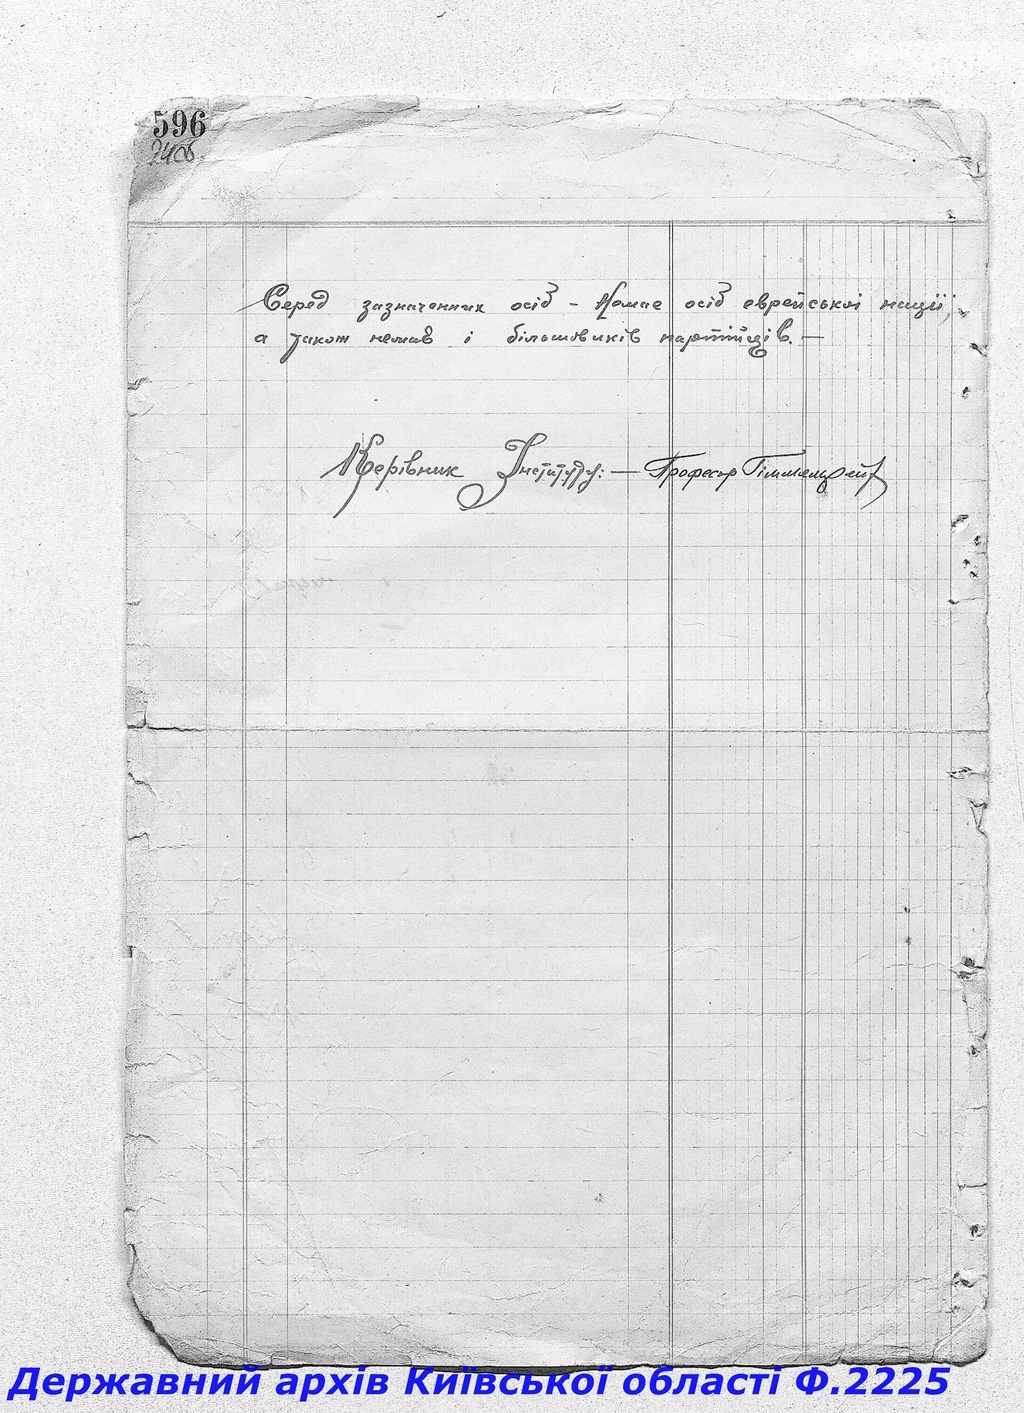 596
24об.
Серед зазначенних осіб - Немає осіб еврейської нації,
а також немає і більшовиків партійців. —
Керівник Інституту: — Професор
Державний архів Київської області Ф.2225